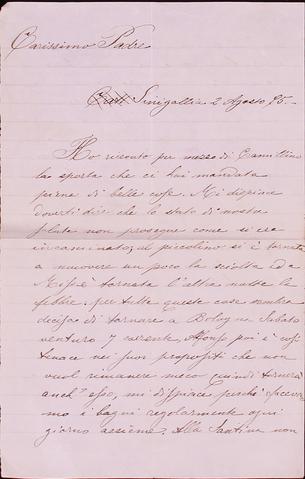 Carissimo Padre
Sinigallia 2 Agosto 95.
Ho ricevuto per mezzo di Camillino
la sporta che ci hai mandata
piena di belle cose. Mi dispiace
doverti dire che lo stato di nostra
salute non prosegue come si era
incamminato; al piccolino si è tornata
a muovere un poco la sciolta ed a
è tornata l'altra notte la
febbre, per tutte queste cose sembra
decisa di tornare a Bologna Sabato
venturo 7 corrente, Alfonso poi è così
tenace nei suoi propositi che non
vuol rimanere meco quindi tornerà
anch'esso, mi dispiace perché facceva
mo i bagni regolarmente ogni
giorno assieme. Alla Santina non